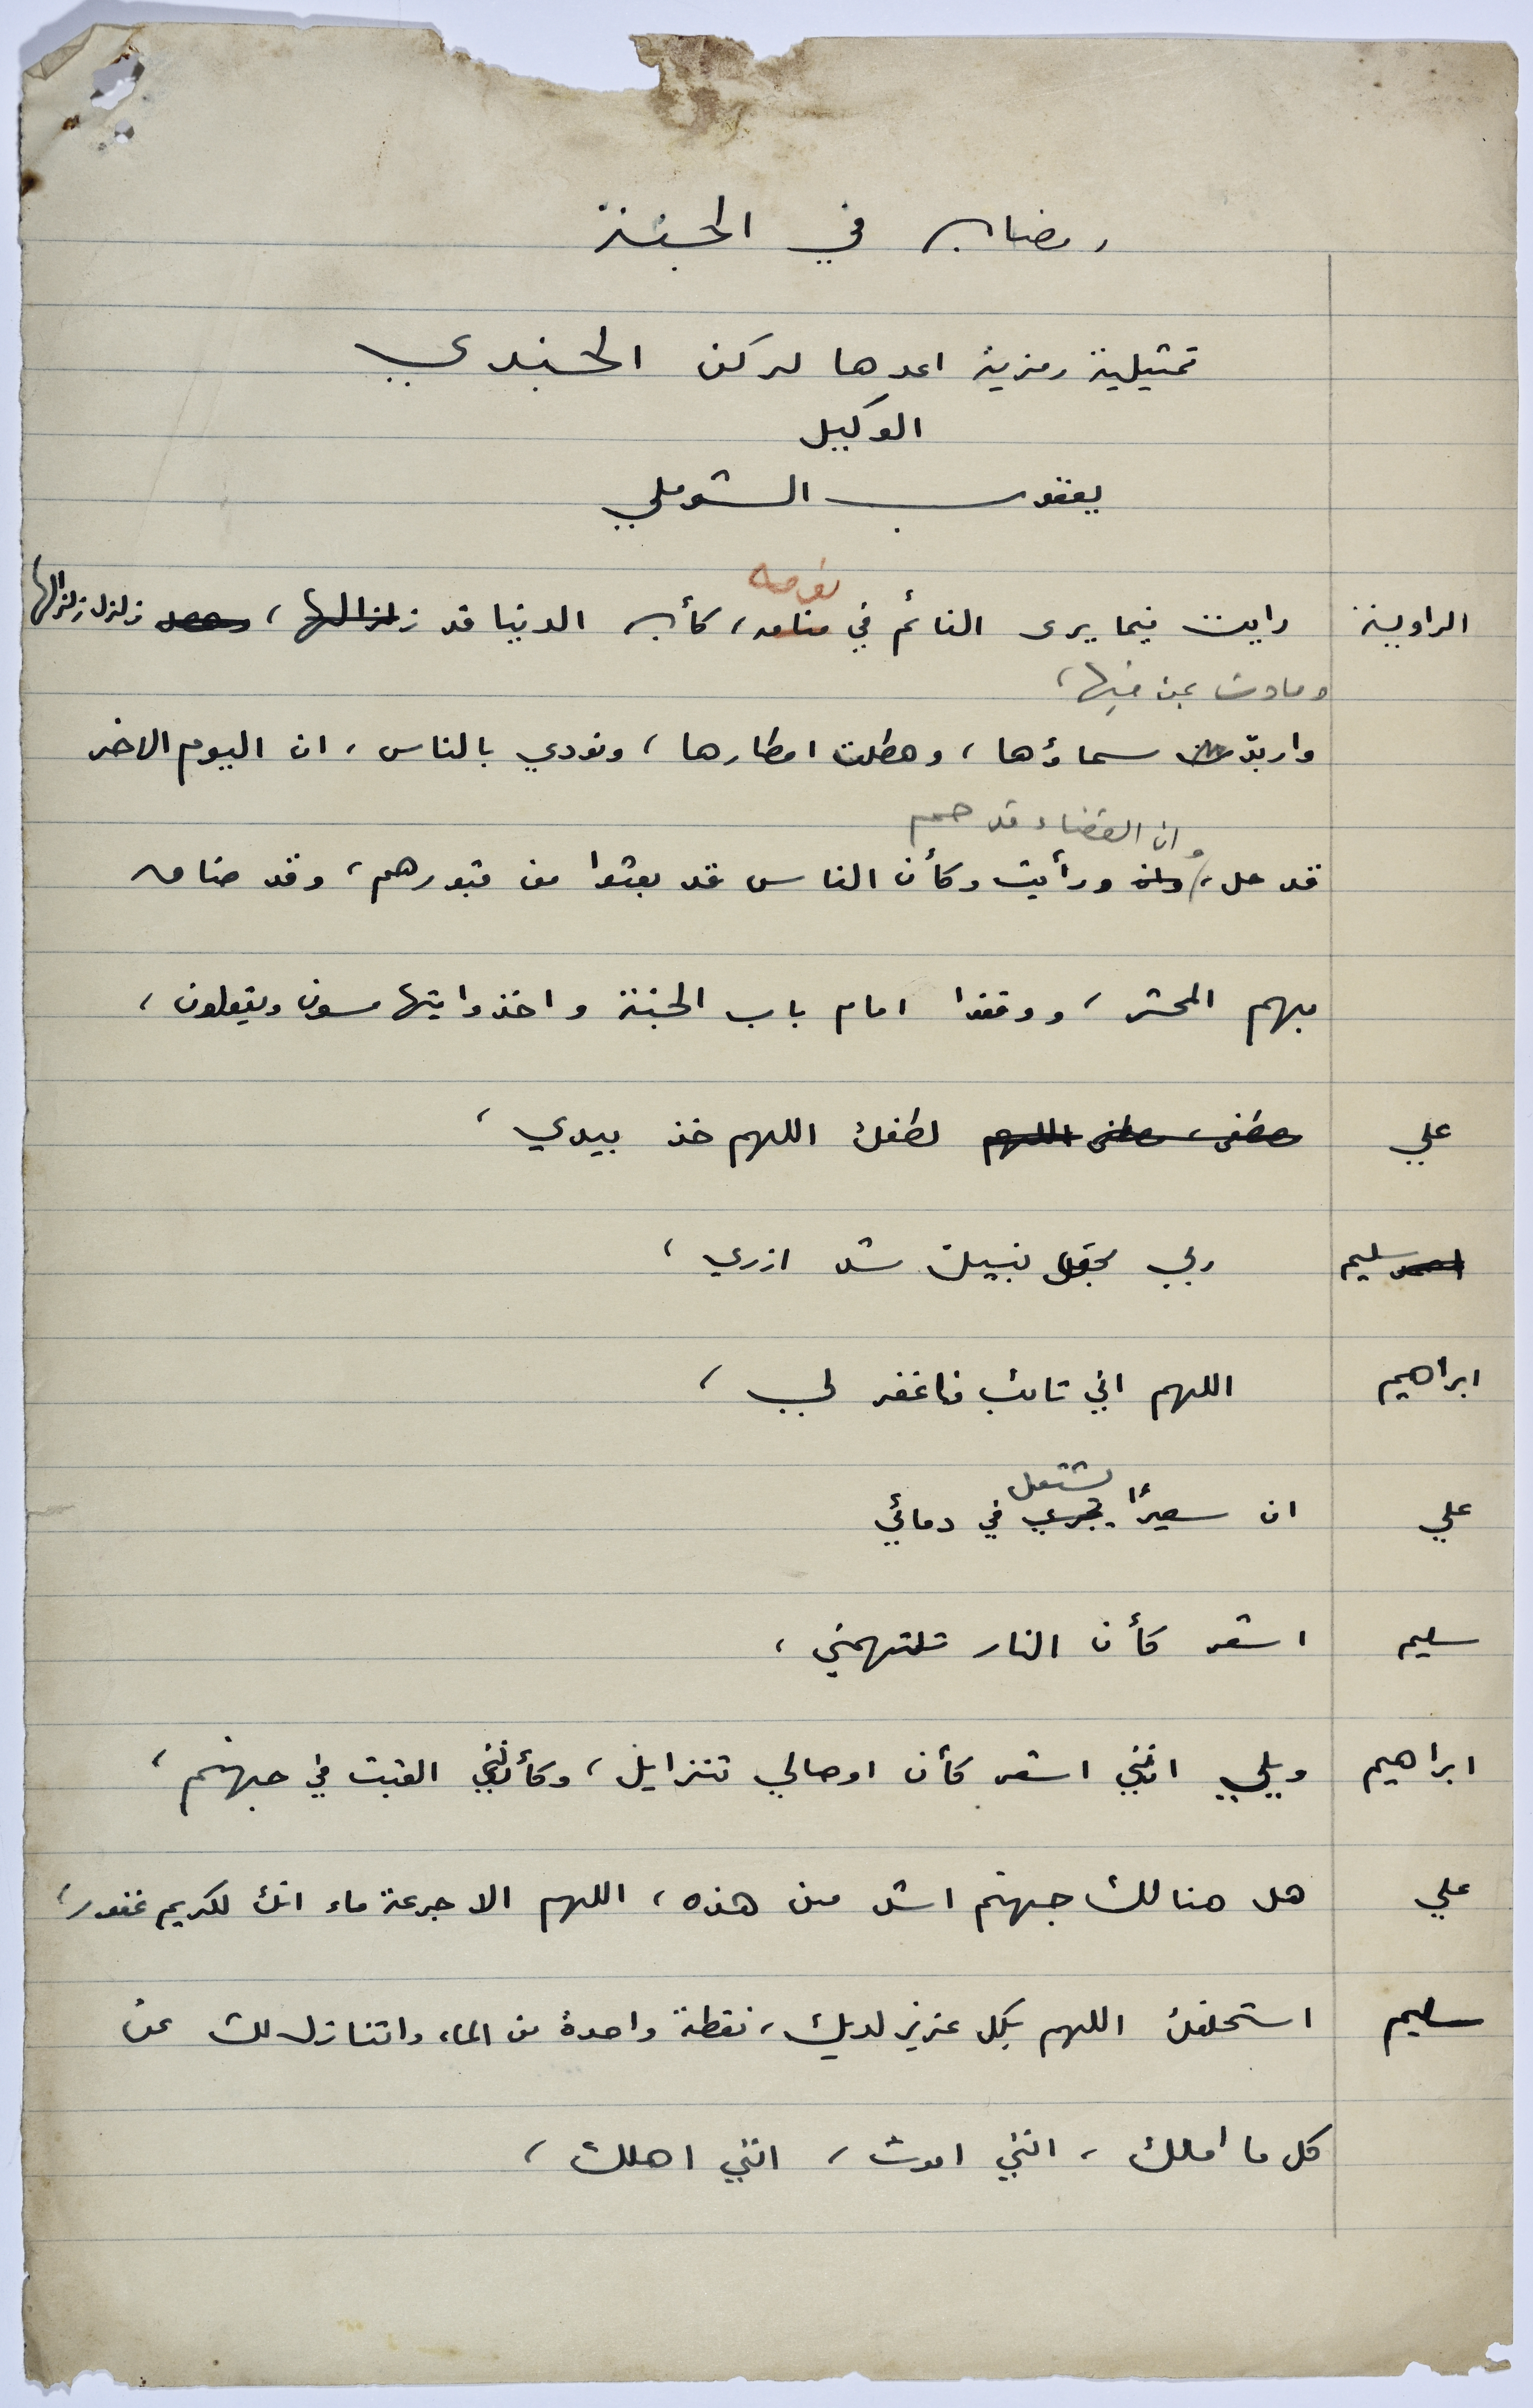 رمضان في الجنة
تمثيلية رمزية اعدها لركن الجندي
الوكيل
يعقوب الشوملي
نومه
الراوية رايت فيما يرى النائم في منامه، كأن الدنيا قد زلزالها، زلزل زلزالها
ومادت بمن فيها،
واربدّت سماؤها، وهطلت امطارها، ونودي بالناس، ان اليوم الاخر
وان القضاء قد حم
قد حل، وان ورأيت وكأن الناس قد بعثوا من قبورهم، وقد ضاق
بهم المحشر، ووقفوا امام باب الجنة واخذوا يتهامسون ويقولون،
علي عطفى، عطفى اللهم لطفك اللهم خذ بيدي،
سليم ربي بحق نبيك شد ازري،
ابراهيم اللهم اني تائب فاغفر لي،
يشتعل
علي ان سعيرًا يجري في دمائي
سليم اشعر كأن النار تلتهمني،
ابراهيم ويلي انني اشعر كأن اوصالي تتزايل، وكأنني القيت في جهنم،
علي هل هنالك جهنم اشد من هذه، اللهم الا جرعة ماء انك لكريم غفور،
سليم استحلفك اللهم بكل عزيز لديك، نقطة واحدة من الماء واتنازل لك عن
كل ما املك، انني اموت، انني اهلك،